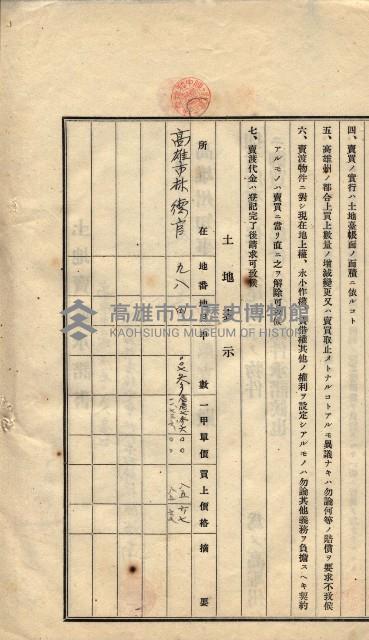 四、賣買ノ實行ハ土地臺帳面ノ面積ニ依ルコト
五、高雄州ノ都合上買上數量ノ增減變更又ハ賣買取止メトナルコトアルモ異議ナキハ勿論何等ノ賠償ヲ要求不致候
六、賣渡物件ニ對シ現在地上權、永小作權、賃借權其他ノ權利ヲ設定シアルモノハ勿論其他義務ヲ負擔スヘキ契約
アルモノハ賣買ニ當リ直ニ之ヲ解除可致候
七、賣渡代金ハ登記完了後請求可致候
土地表示
所在 地番 地目 甲數 一甲單價 買上價格 摘要
高雄市林德官 九八
高雄市立歷史博物館
KAOHSIUNG MUSEUM OF HISTORY